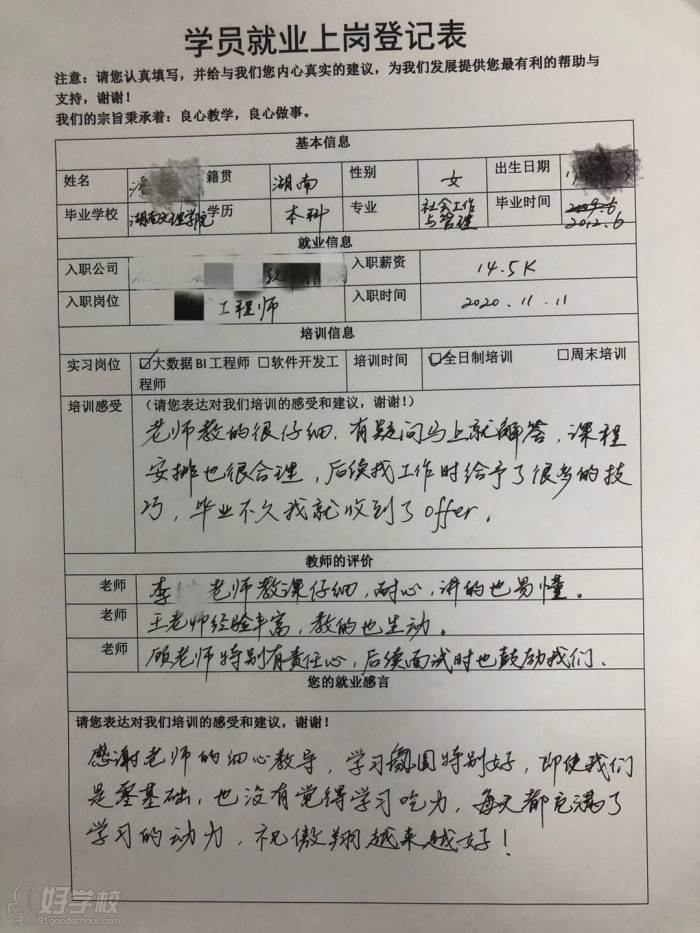 学员就业上岗登记表
注意：请您认真填写，并给与我们您内心真实的建议，为我们发展提供您最有利的帮助与
支持，谢谢！
我们的宗旨秉承着：良心教学，良心做事。
基本信息
姓名 潘 籍贯 湖南 性别 女 出生日期
毕业学校 湖南文理学院 学历 本科 专业 社会工作与管理 毕业时间 2012.6
就业信息
入职公司 入职薪资 14.5K
入职岗位 工程师 入职时间 2020.11.11
培训信息
实习岗位 ☑大数据BI工程师 □软件开发工程师 培训时间 ☑全日制培训 □周末培训
培训感受 （请您表达对我们培训的感受和建议，谢谢！）
老师教的很仔细，有疑问马上就解答，课程
安排也很合理，后续找工作时给予了很多的技
巧，毕业不久我就收到了offer.
教师的评价
老师 李 老师教课仔细，耐心，讲的也易懂。
老师 王老师经验丰富，教的也生动。
老师 顾老师特别有责任心，后续面试时也鼓励我们.
您的就业感言
请您表达对我们培训的感受和建议，谢谢！
感谢老师的细心教导，学习氛围特别好，即使我们
是零基础，也没有觉得学习吃力，每天都充满了
学习的动力，祝傲翔越来越好！
好学校
91goodschool.com